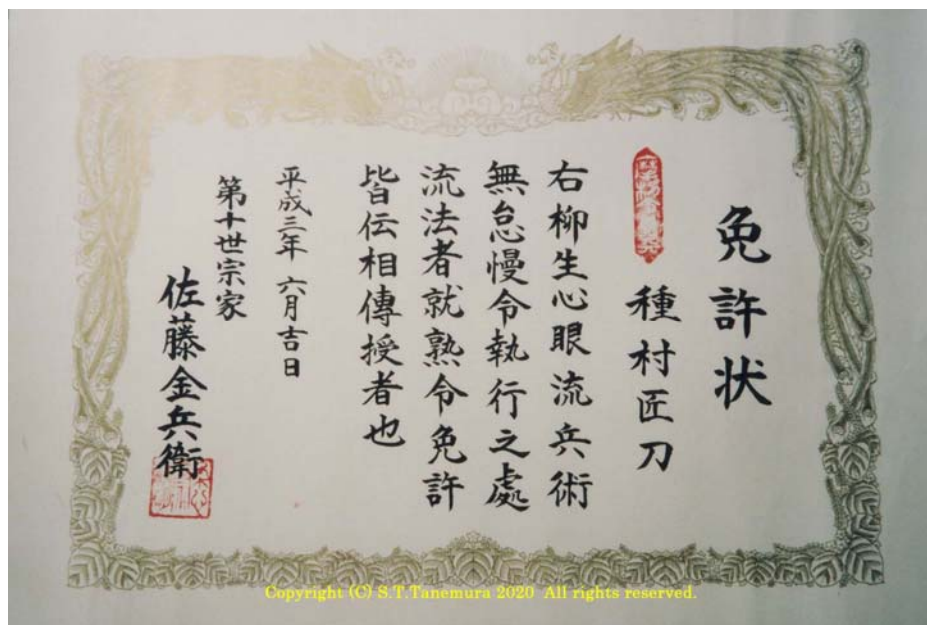 免許状
種村匠刀
右柳生心眼流兵術
無怠慢令執行之處
流法者就熟令免許
皆伝相傳授者也
平成三年 六月吉日
第十世宗家
佐藤金兵衛
Copyright (C) S.T.Tanemura 2020 All rights reserved.